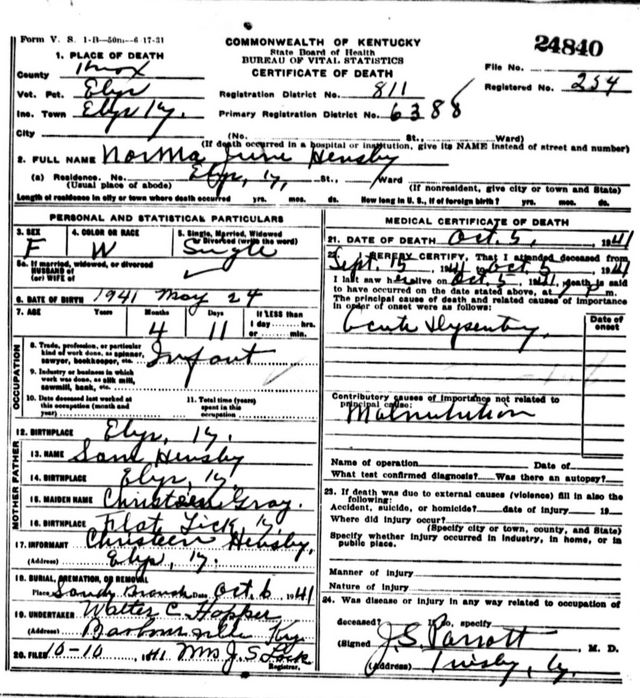 Form V. S. 1-B—50m—6 17-31
COMMONWEALTH OF KENTUCKY
State Board of Health
BUREAU OF VITAL STATISTICS
CERTIFICATE OF DEATH
24840
File No.
Registered No. 254
1. PLACE OF DEATH
County Knox
Vot. Pct. Elys
Inc. Town Elys Ky.
City
Registration District No. 811
Primary Registration District No. 6388
(No. St., Ward)
(If death occurred in a hospital or institution, give its NAME instead of street and number)
2. FULL NAME Norma June Hensley
(a) Residence. No. Elys, Ky, St., Ward
(Usual place of abode) (If nonresident, give city or town and State)
Length of residence in city or town where death occurred yrs. mos. ds. How long in U. S., if of foreign birth? yrs. mos. ds.
PERSONAL AND STATISTICAL PARTICULARS
3. SEX F
4. COLOR OR RACE W
5. Single, Married, Widowed or Divorced (write the word) Single
5a. If married, widowed, or divorced
HUSBAND of
(or) WIFE of
6. DATE OF BIRTH 1941 May 24
7. AGE Years Months 4 Days 11 If LESS than
1 day hrs.
or min.
OCCUPATION
8. Trade, profession, or particular
kind of work done, as spinner,
sawyer, bookkeeper, etc. Infant
9. Industry or business in which
work was done, as silk mill,
sawmill, bank, etc.
10. Date deceased last worked at
this occupation (month and
year)
11. Total time (years)
spent in this
occupation
12. BIRTHPLACE Elys, Ky.
FATHER
13. NAME Sam Hensley
14. BIRTHPLACE Elys, Ky.
MOTHER
15. MAIDEN NAME Christeen Gray.
16. BIRTHPLACE Flat Lick, Ky.
17. INFORMANT Christeen Hensley,
(Address) Elys, Ky.
18. BURIAL, CREMATION, OR REMOVAL
Place Sandy Branch Date Oct. 6 1941
19. UNDERTAKER Walter C. Hopper
(Address) Barbourville Ky
20. FILED 10-10 1941 Mrs J. S. Lock
Registrar.
MEDICAL CERTIFICATE OF DEATH
21. DATE OF DEATH Oct. 5, 1941
22. I HEREBY CERTIFY, That I attended deceased from
Sept. 15 1941 to Oct. 5, 1941
I last saw h alive on Oct. 5 1941, death is said
to have occurred on the date stated above, at m.
The principal cause of death and related causes of importance
in order of onset were as follows:
Date of
onset
Acute Dysentery,
Contributory causes of importance not related to
principal cause:
Malnutrition
Name of operation Date of
What test confirmed diagnosis? Was there an autopsy?
23. If death was due to external causes (violence) fill in also the
following:
Accident, suicide, or homicide? date of injury 19
Where did injury occur?
(Specify city or town, county, and State)
Specify whether injury occurred in industry, in home, or in
public place.
Manner of injury
Nature of injury
24. Was disease or injury in any way related to occupation of
deceased? If so, specify
(Signed) J. S. Parrott M. D.
(Address) Ky.